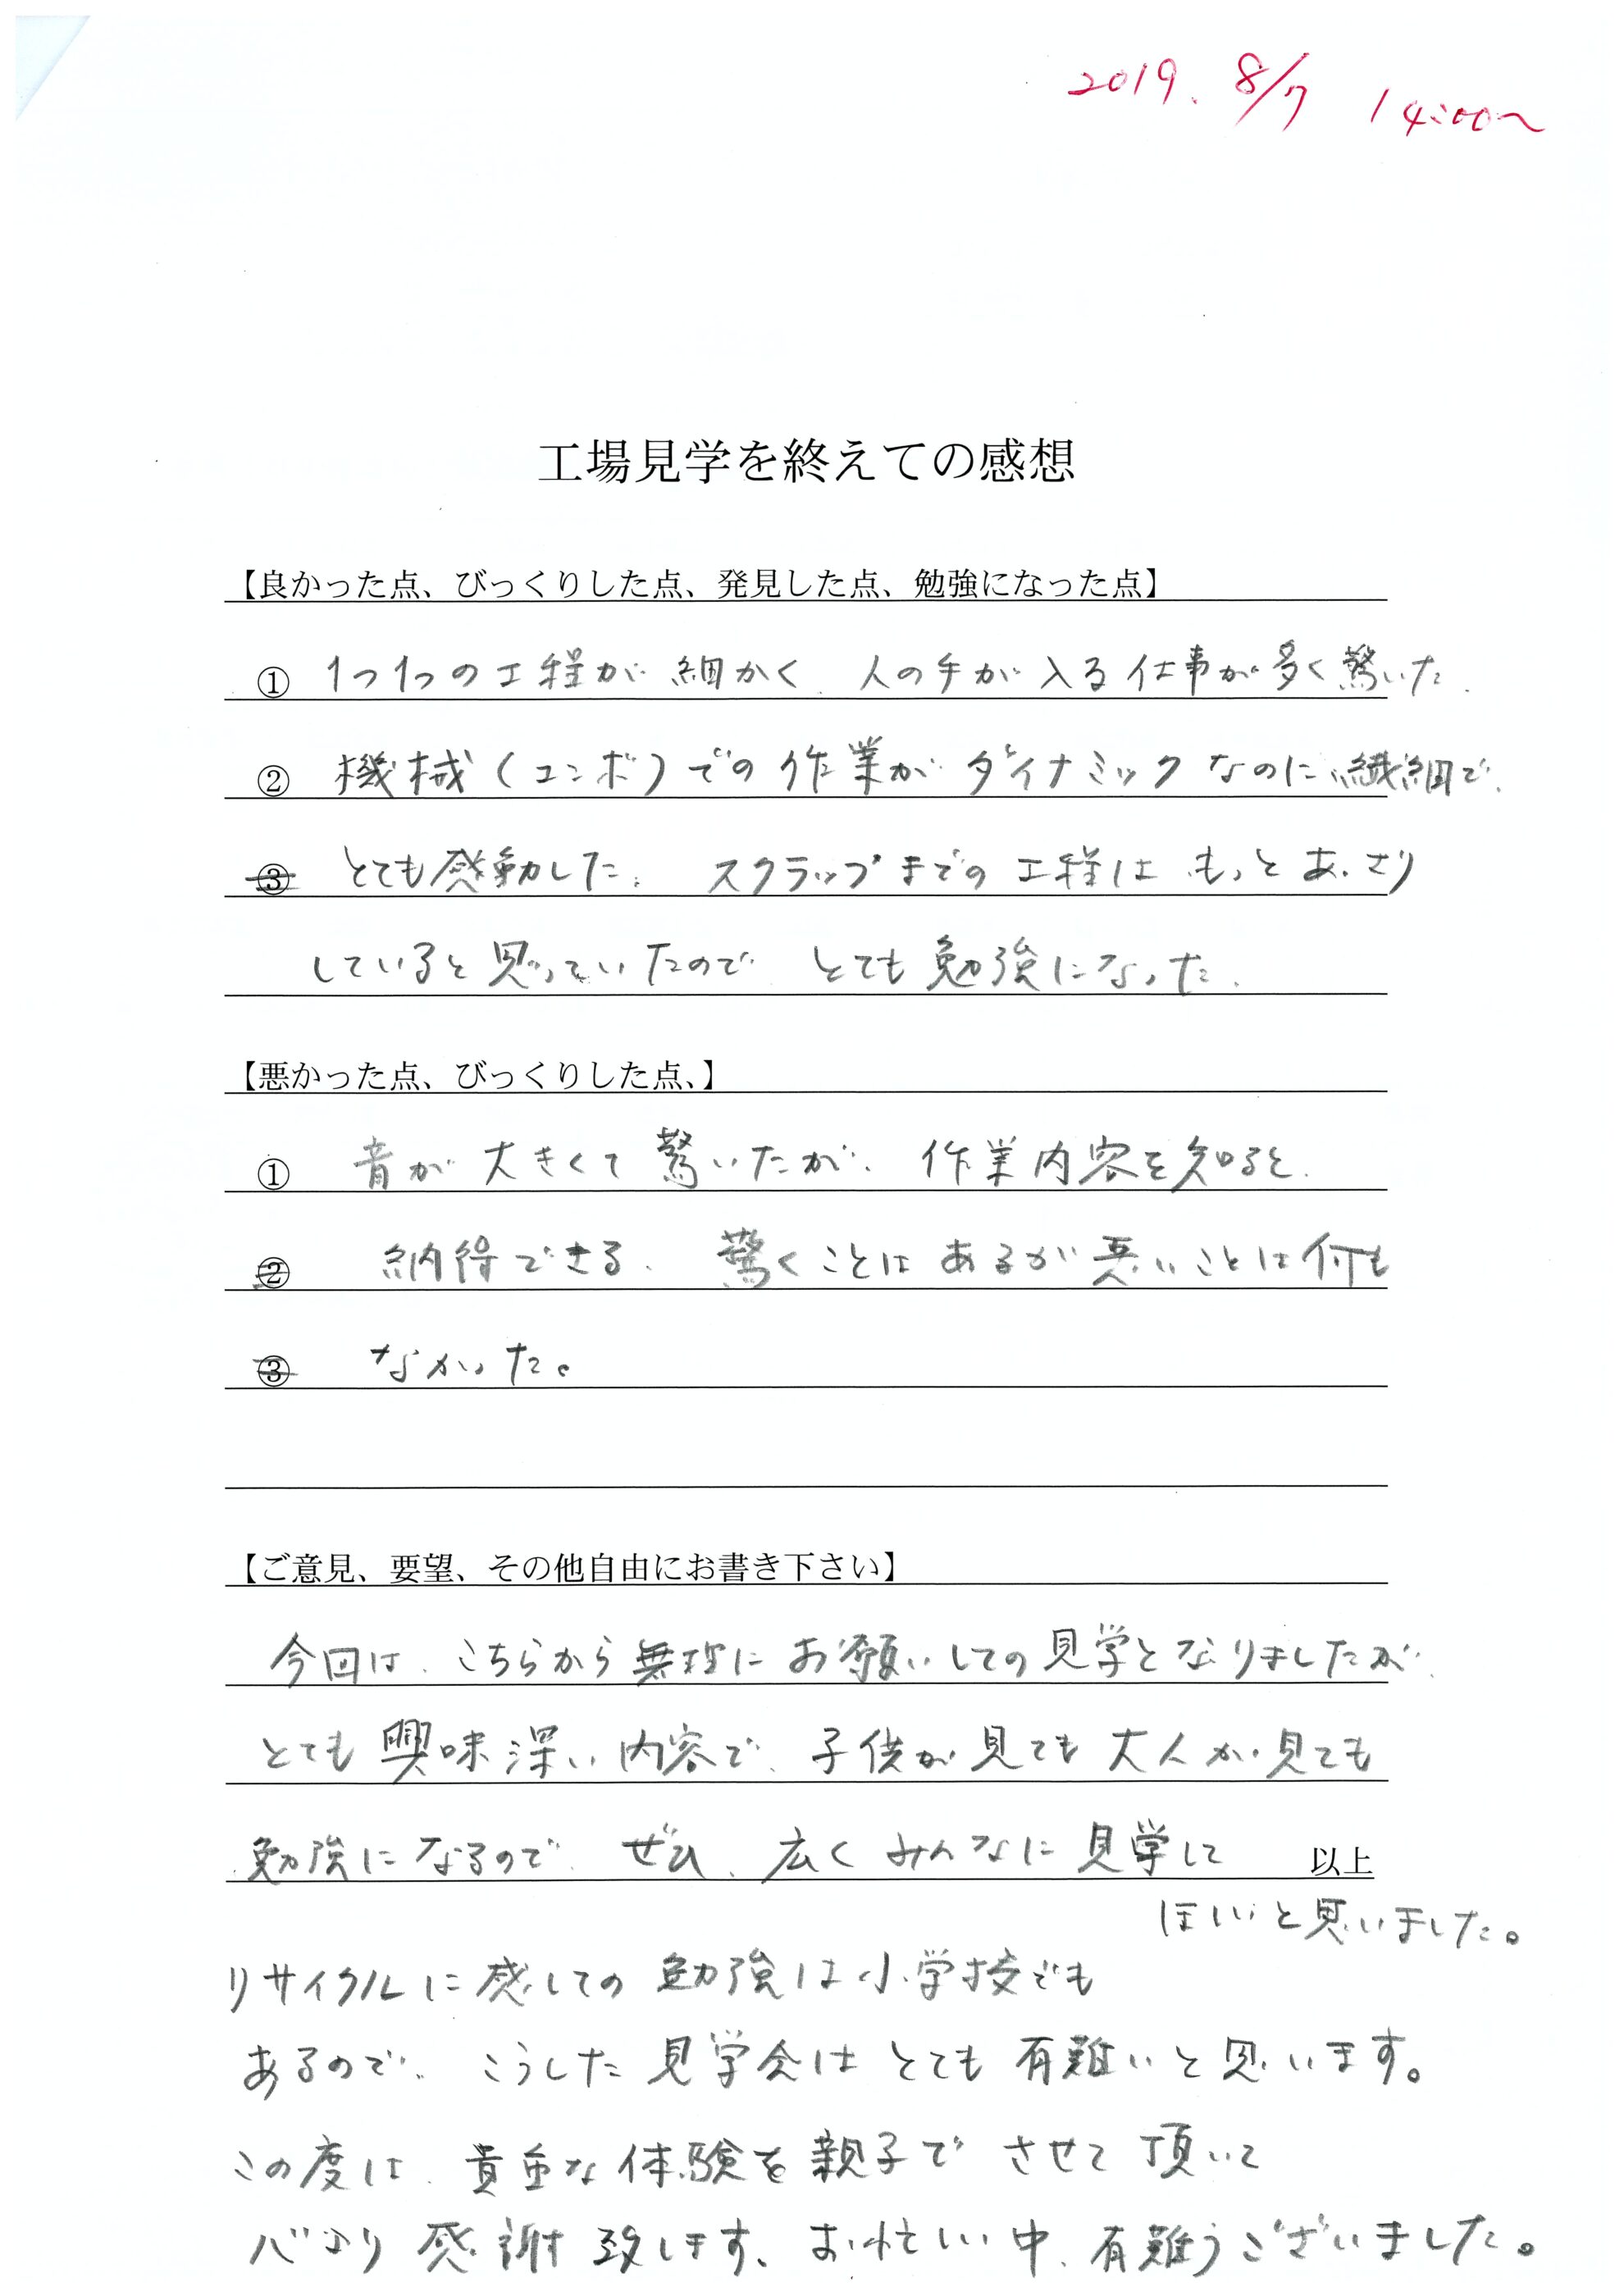 2019. 8/7 14:00〜
工場見学を終えての感想
【良かった点、びっくりした点、発見した点、勉強になった点】
① 1つ1つの工程が細かく、人の手が入る仕事が多く驚いた。
② 機械(ユンボ)での作業がダイナミックなのに繊細で、
③ とても感動した。スクラップまでの工程はもっとあっさり
していると思っていたので、とても勉強になった。
【悪かった点、びっくりした点、】
① 音が大きくて驚いたが、作業内容を知ると、
② 納得できる。驚くことはあるが悪いことは何も
③ なかった。
【ご意見、要望、その他自由にお書き下さい】
今回は、こちらから無理にお願いしての見学となりましたが、
とても興味深い内容で、子供が見ても大人が見ても
勉強になるので、ぜひ、広くみんなに見学して 以上
ほしいと思いました。
リサイクルに感しての勉強は小学校でも
あるので、こうした見学会はとても有難いと思います。
この度は、貴重な体験を親子でさせて頂いて
心より感謝致します、お忙しい中、有難うございました。